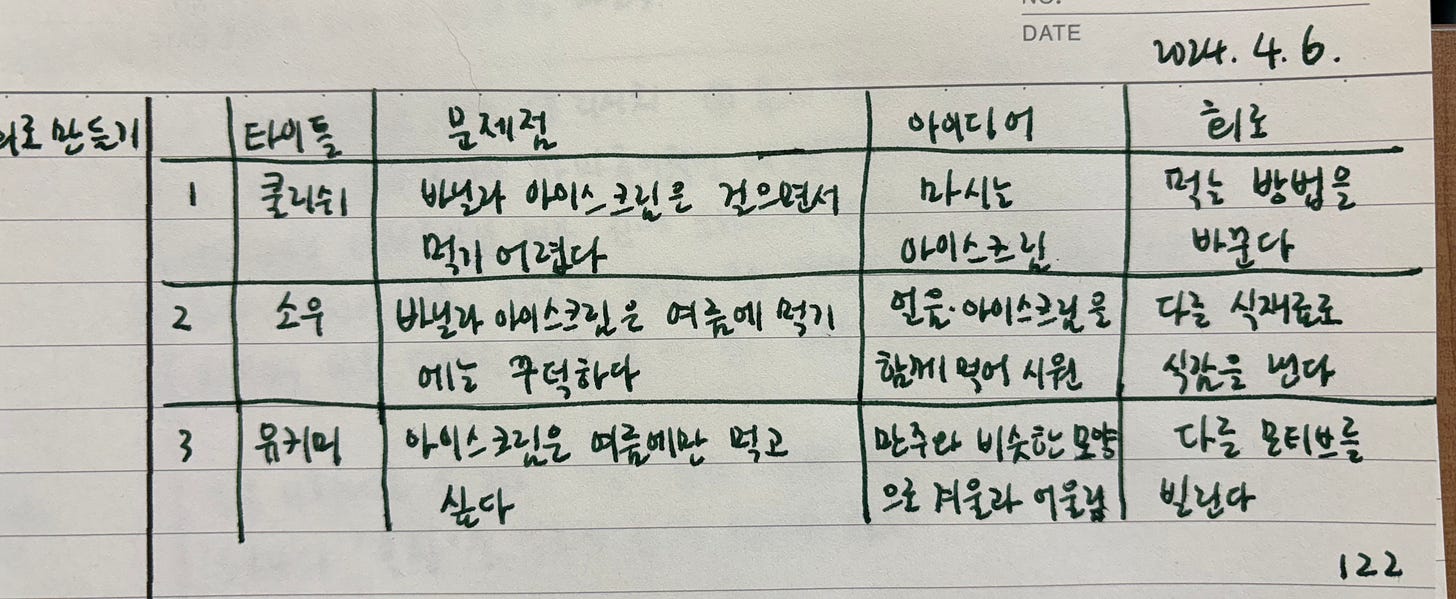 NO.
DATE 2024. 4. 6.
만들기 타이틀 문제점 아이디어 희로
1 쿨리쉬 바닐라 아이스크림은 걸으면서 마시는 먹는 방법을
먹기 어렵다 아이스크림 바꾼다
2 소우 바닐라 아이스크림은 여름에 먹기 얼음·아이스크림을 다른 식재료로
에는 꾸덕하다 함께 먹어 시원 식감을 낸다
3 유키미 아이스크림은 여름에만 먹고 만주와 비슷한 모양 다른 모티브를
싶다 으로 겨울과 어울림 빌린다
122